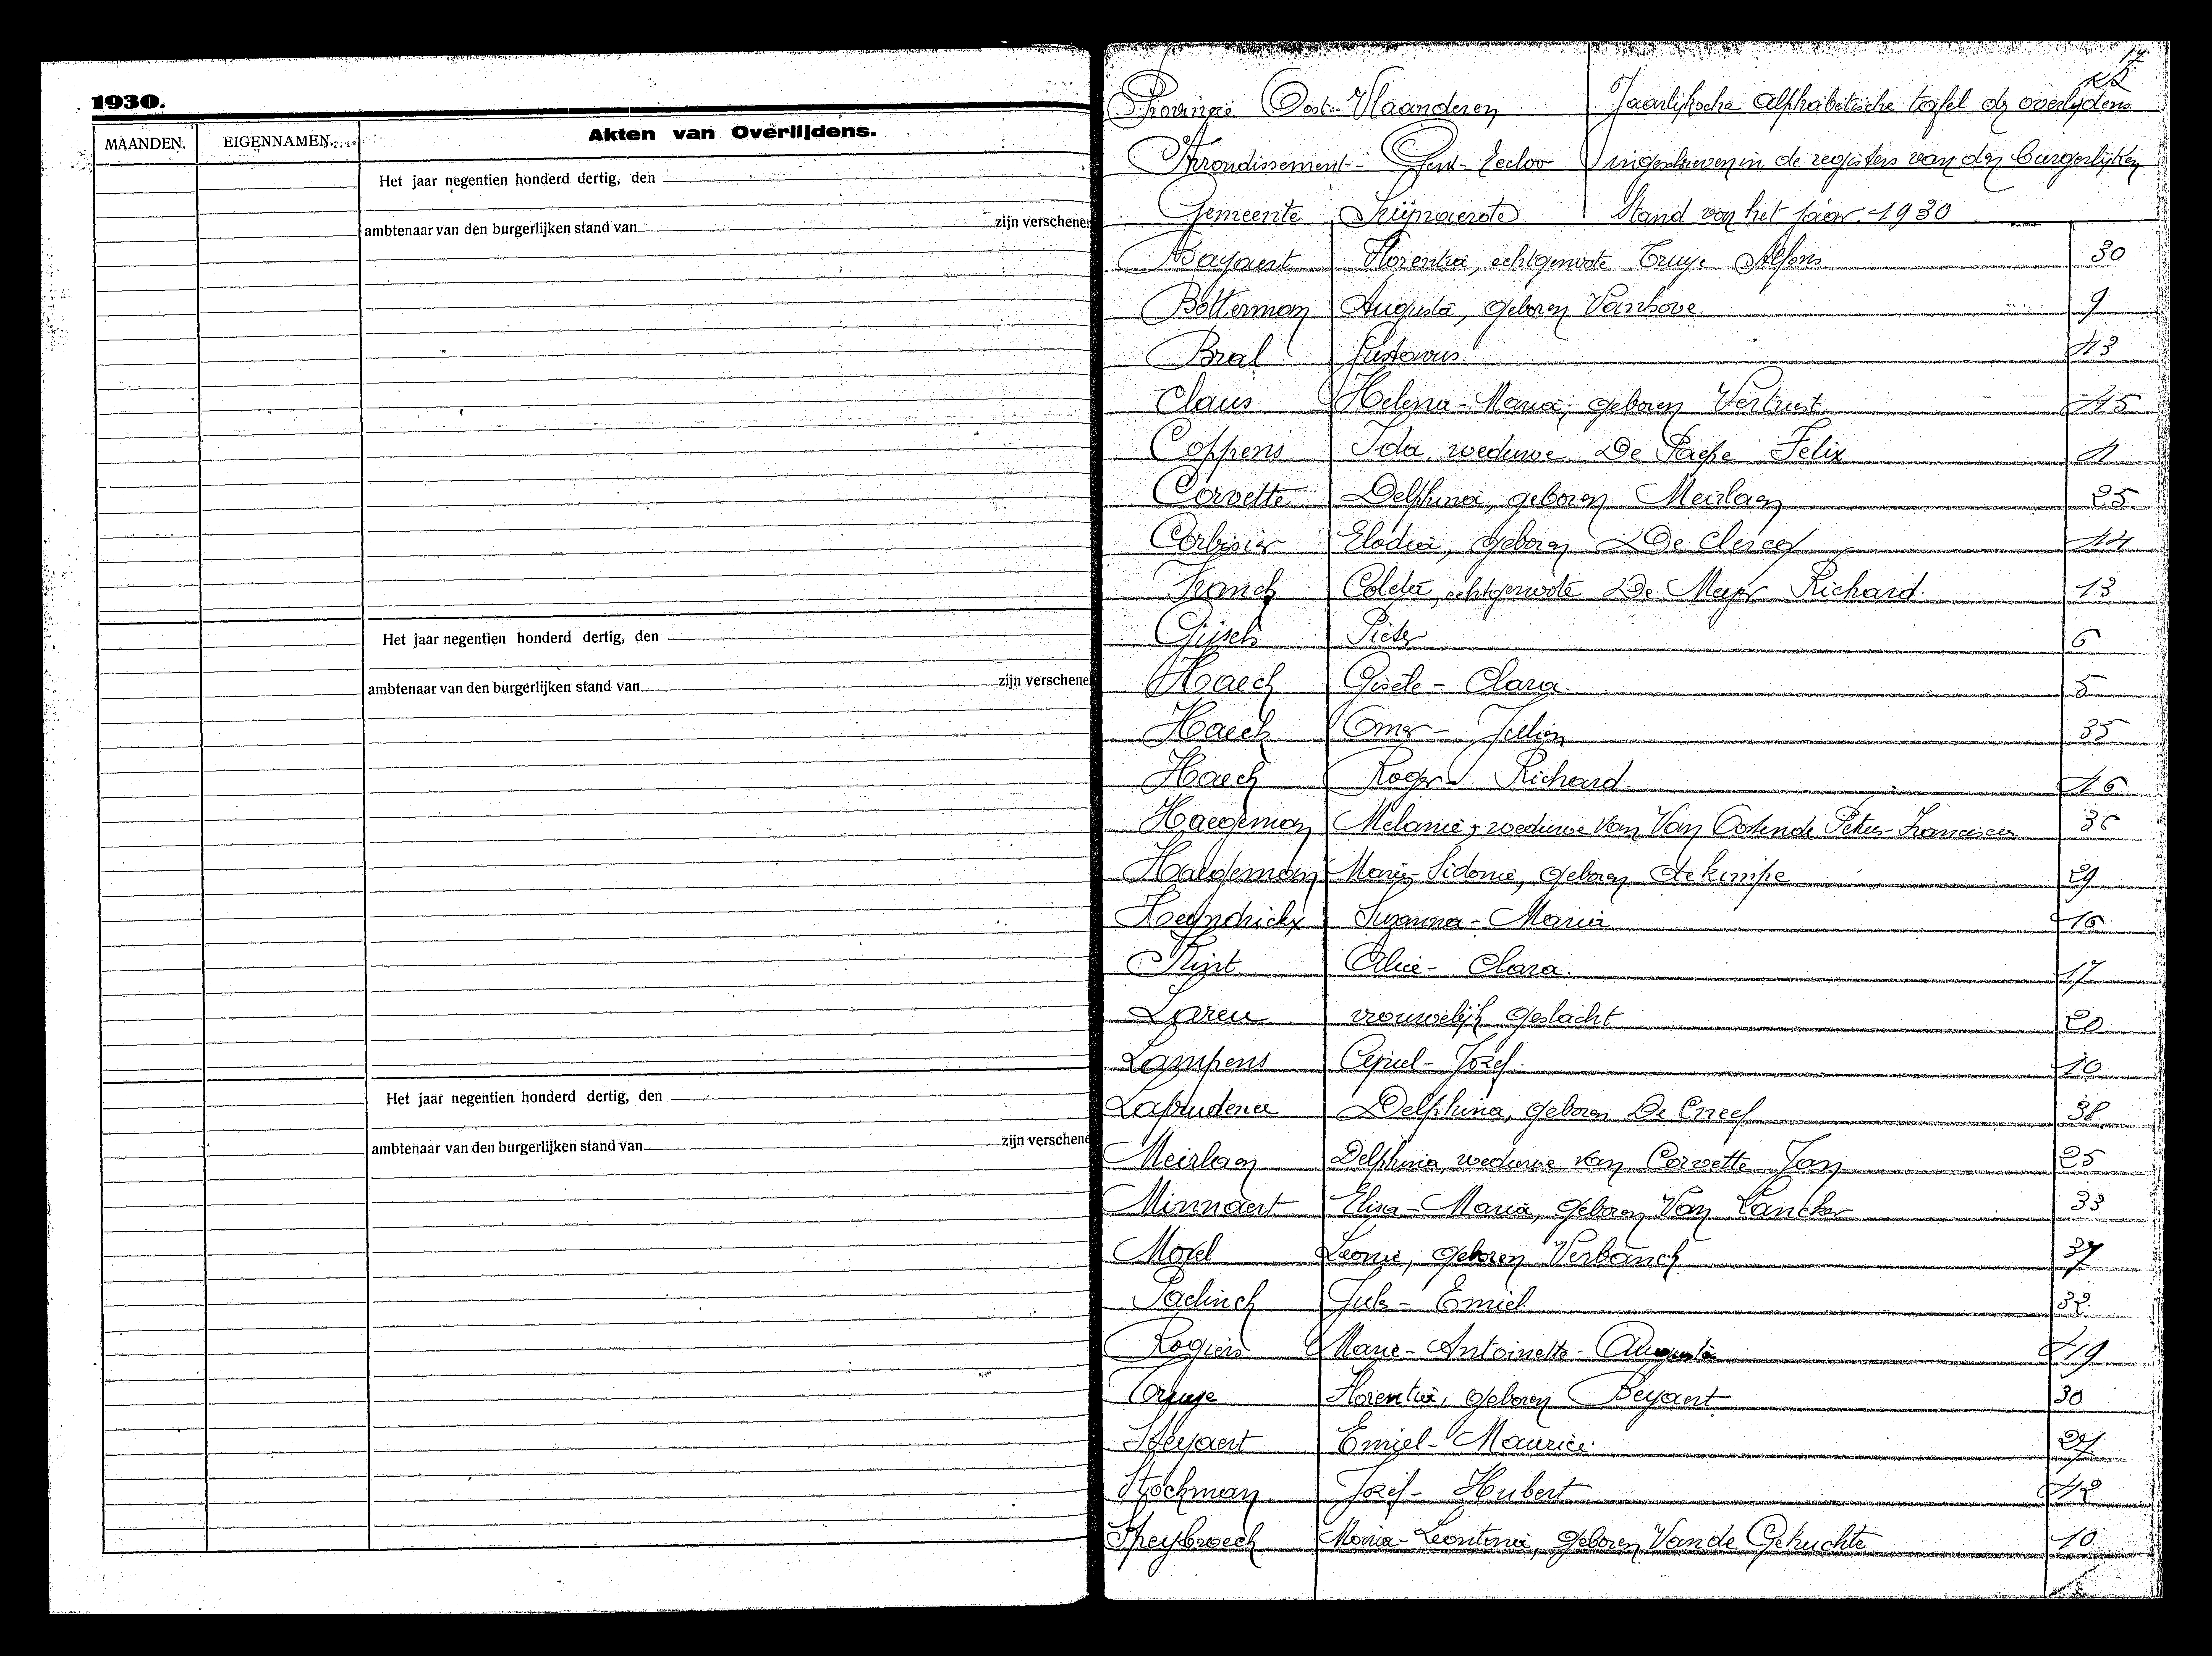 1930.
MAANDEN.
EIGENNAMEN.
Akten van Overlijdens.
Het jaar negentien honderd dertig, den
ambtenaar van den burgerlijken stand van
zijn verschenen
Het jaar negentien honderd dertig, den
ambtenaar van den burgerlijken stand van
zijn verschene
Het jaar negentien honderd dertig, den
ambtenaar van den burgerlijken stand van
zijn verschene
17
Provincie Oost-Vlaanderen
Jaarlijksche alphabetische tafel der overlijdens
Arrondissement Gent-Eecloo
ingeschreven in de registers van den burgerlijken
Gemeente
Stand van het jaar 1930
Bayaert Florentia, echtgenoote Truye Alfons 30
Botterman Augusta, geboren Vanhove 9
Bral Gustavus. 43
Claus Helena-Maria, geboren Vertriest 45
Coppens Ida, weduwe De Paepe Felix
Corvette Delphina, geboren Meirlaen 25
Corbisier Elodia, geboren De Clercq 44
Franck Coleta, echtgenoote De Meyer Richard. 13
Gijsels Pieter 6
Haeck Gisèle-Clara. 5
Haeck Omer-Julien 35
Haeck Roger-Richard. 46
Haegeman Melanie, weduwe van Van Oostende Petrus-Franciscus 36
Haegeman Marie-Sidonie, geboren Dekimpe 29
Heyndrickx Suzanna-Maria 16
Kint Alice-Clara. 17
Lareu vrouwelijk geslacht 20
Lampens Cyriel-Jozef 10
Delphina, geboren De Cneef 38
Meirlaen Delphina, weduwe van Corvette Jan 25
Minnaert Elisa-Maria, geboren Van Lancker 33
Morel Leonie, geboren Verbanck 37
Paelinck Jules-Emiel 32.
Rogiers Marie-Antoinette-Augusta 19
Truye Florentia, geboren Beyaert 30
Steyaert Emiel-Maurice. 27
Stockman Jozef-Hubert 42
Speybroeck Maria-Leontina, geboren Van de Gehuchte 10